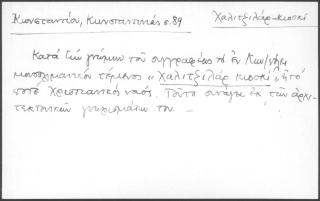 Κωνσταντίου, Κωνσταντινιάς σ. 89
Χαλιτζιλάρ-κιοσκί
Κατά τὴν γνώμην τοῦ συγγραφέως τὸ ἐν Κων/πόλει
μουσλμανικὸν τέμενος "Χαλιτζιλάρ κιοσκί", ἦτό
ποτε Χριστιανικὸς ναός. Τοῦτο συνάγει ἐκ τῶν ἀρχι-
τεκτονικῶν γνωρισμάτων του —